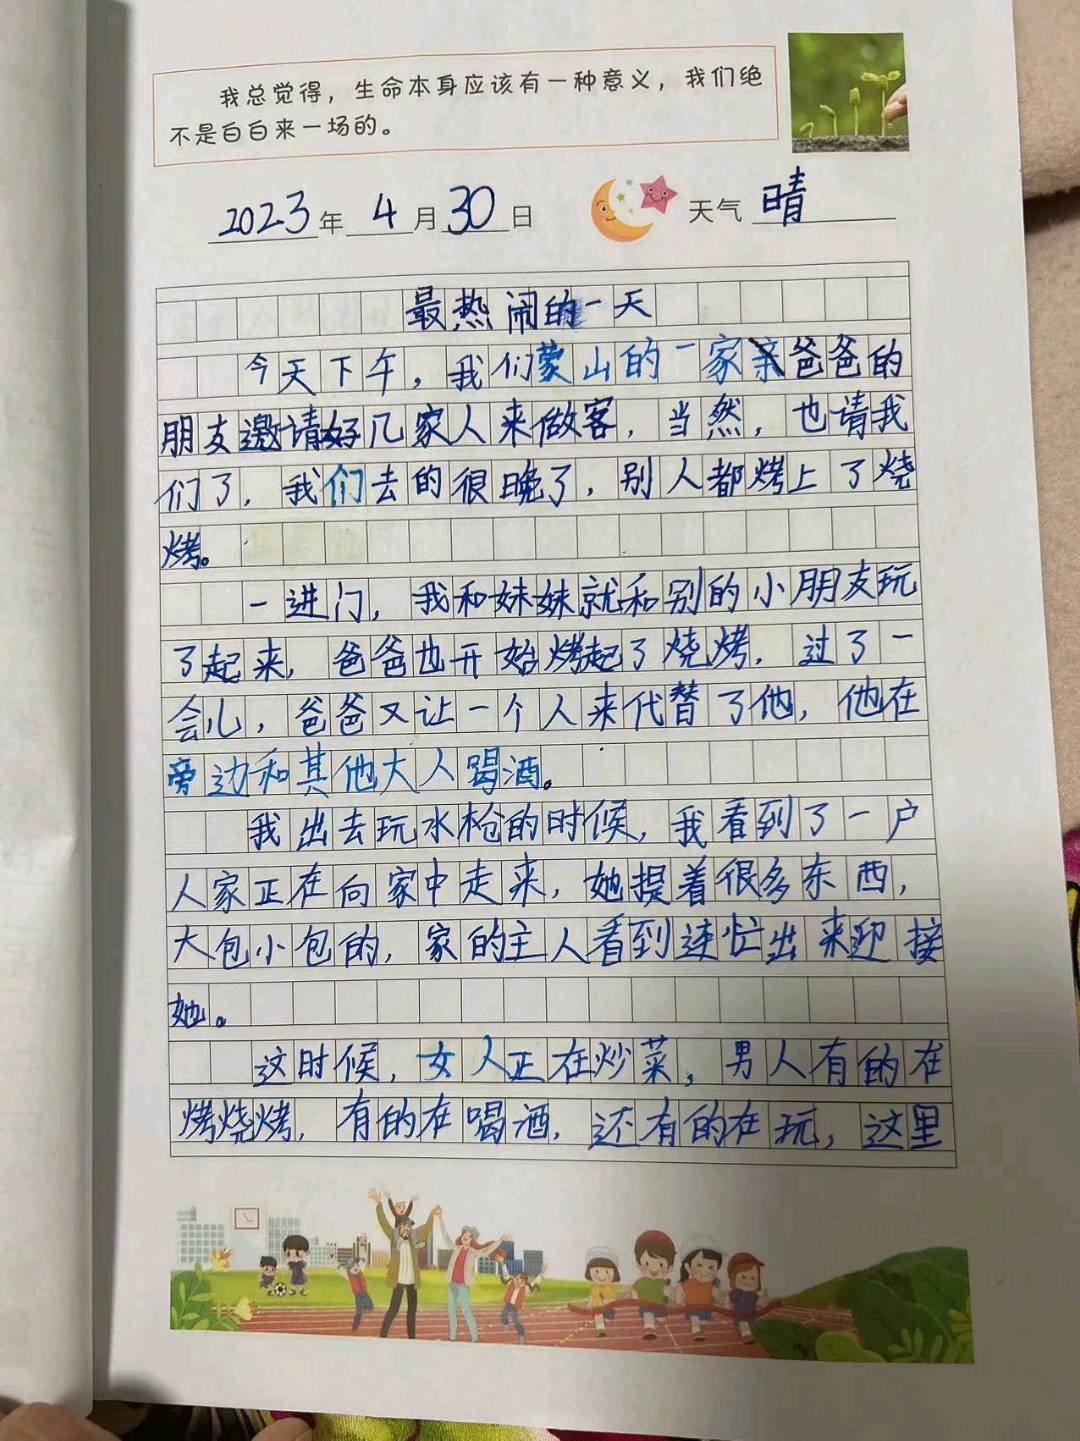 我总觉得，生命本身应该有一种意义，我们绝
不是白白来一场的。
2023年 4月30日 天气 晴
最热闹的一天
今天下午，我们蒙山的一家亲爸爸的
朋友邀请好几家人来做客，当然，也请我
们了，我们去的很晚了，别人都烤上了烧
烤。
一进门，我和妹妹就和别的小朋友玩
了起来，爸爸也开始烤起了烧烤，过了一
会儿，爸爸又让一个人来代替了他，他在
旁边和其他大人喝酒。
我出去玩水枪的时候，我看到了一户
人家正在向家中走来，她提着很多东西，
大包小包的，家的主人看到连忙出来迎接
她。
这时候，女人正在炒菜，男人有的在
烤烧烤，有的在喝酒，还有的在玩，这里